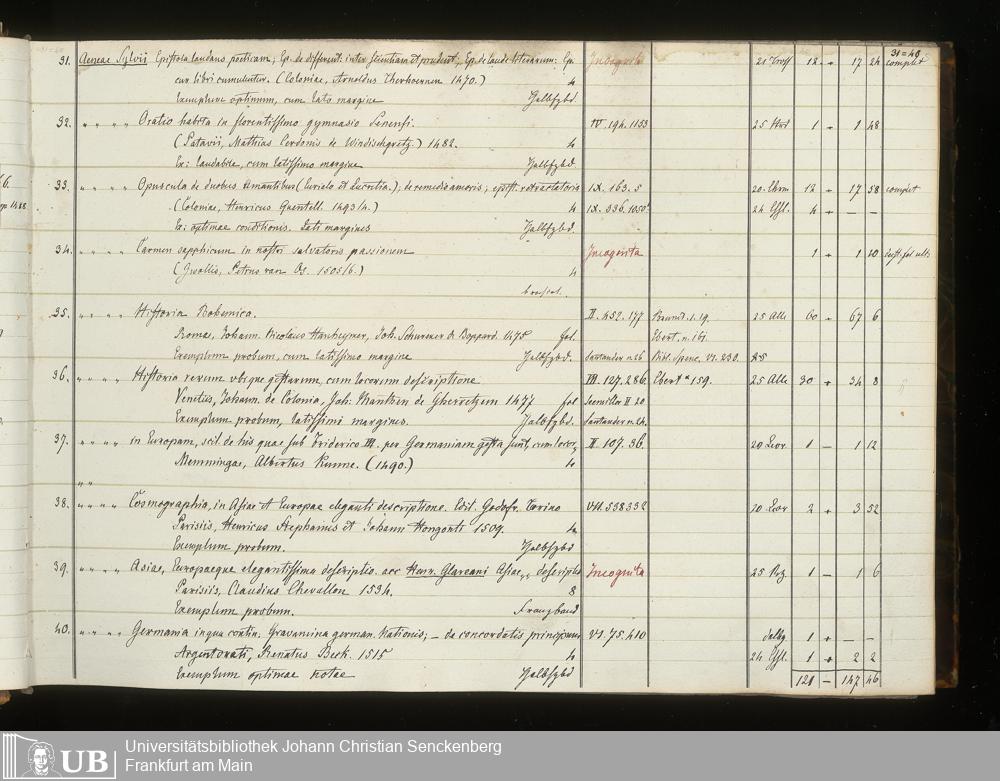 31 = 40
31. Aeneae Sylvii Epistola laudans poeticam; Ep. de different. inter scientiam et prudent; Ep. de laude literarum: Ep. Incognita 12 17 24 complet
cur libri cumulentur. (Coloniae, Arnoldus Therhoernen 1470.) 4
Exemplum optimum, cum lato margine Halbfzbd.
32. " " " " Oratio habita in florentissimo gymnasio Senensi. IV. 194. 1153 25 1 - 1 48
(Patavii, Mathias Cerdonis de Windischgretz.) 1482. 4
Ex: laudabile, cum latissimo margine Halbfzbd.
33. " " " " Opuscula de duobus Amantibus (Eurielo et Lucretia.); de remedio amoris; epist. retractatoria IX. 163. 5 20. 12 17 58 complet
(Coloniae, Henricus Quentell. 1493/4.) 4 IX. 336. 1050 24 Effl. 4 - -
Ex: optimae conditionis. Lati margines Halbfzbd.
34. " " " " Carmen sapphicum in nostri salvatoris passionem Incognita 1 1 20
(Swollis, Petrus van Os. 1505/6.) 4
broschirt.
35. " " " " Historia Bohemica. II. 452. 177 Brunnd. 1. 19. 25 Alle 60 67 6
Romae, Johann. Nicolaus Hanheymer, Joh. Schurener de Boppard. 1475 fol. Ebert. n. 161.
Exemplum probum, cum latissimo margine Halbfzbd. Santander n. 26 Bibl. Spenc. VI. 230.
36. " " " " Historia rerum ubique gestarum, cum locorum descriptione III. 127. 286. Ebert n 159. 25 Alle 30 34 8
Venetiis, Johann. de Colonia, Joh: Manthen de Gherretzem 1477 fol Seemiller II 20
Exemplum probum, latissimi margines. Halbfzbd. Santander n. 24.
37. " " " " in Europam, scil. de his quae sub Friderico III. per Germaniam gesta sunt, cum locor. II. 107. 36. 20 Leor 1 - 1 12
Memmingae, Albertus Kunne. (1490.) 4
" "
38. " " " " Cosmographia, in Asiae et Europae eleganti descriptione. Edit. Godofr. Torino VII. 538 332 20 Leor 2 3 52
Parisiis, Henricus Stephanus et Johann Hongonti 1509. 4
Exemplum probum. Halbfzbd
39. " " " " Asiae, Europaeque elegantissima descriptio. acc Henr. Glareani Asiae descriptio Incognita 25 1 - 1 6
Parisiis, Claudius Chevallon 1534. 8
Exemplum probum. Franzband
40. " " " " Germania in qua contin. Gravamina german. Nationis; - de concordatis principum VI. 75. 410 1 - -
Argentorati, Renatus Beck. 1515 4 24 Effl. 1 2 2
Exemplum optimae notae Halbfzbd 121 - 147 46
UB Universitätsbibliothek Johann Christian Senckenberg
Frankfurt am Main